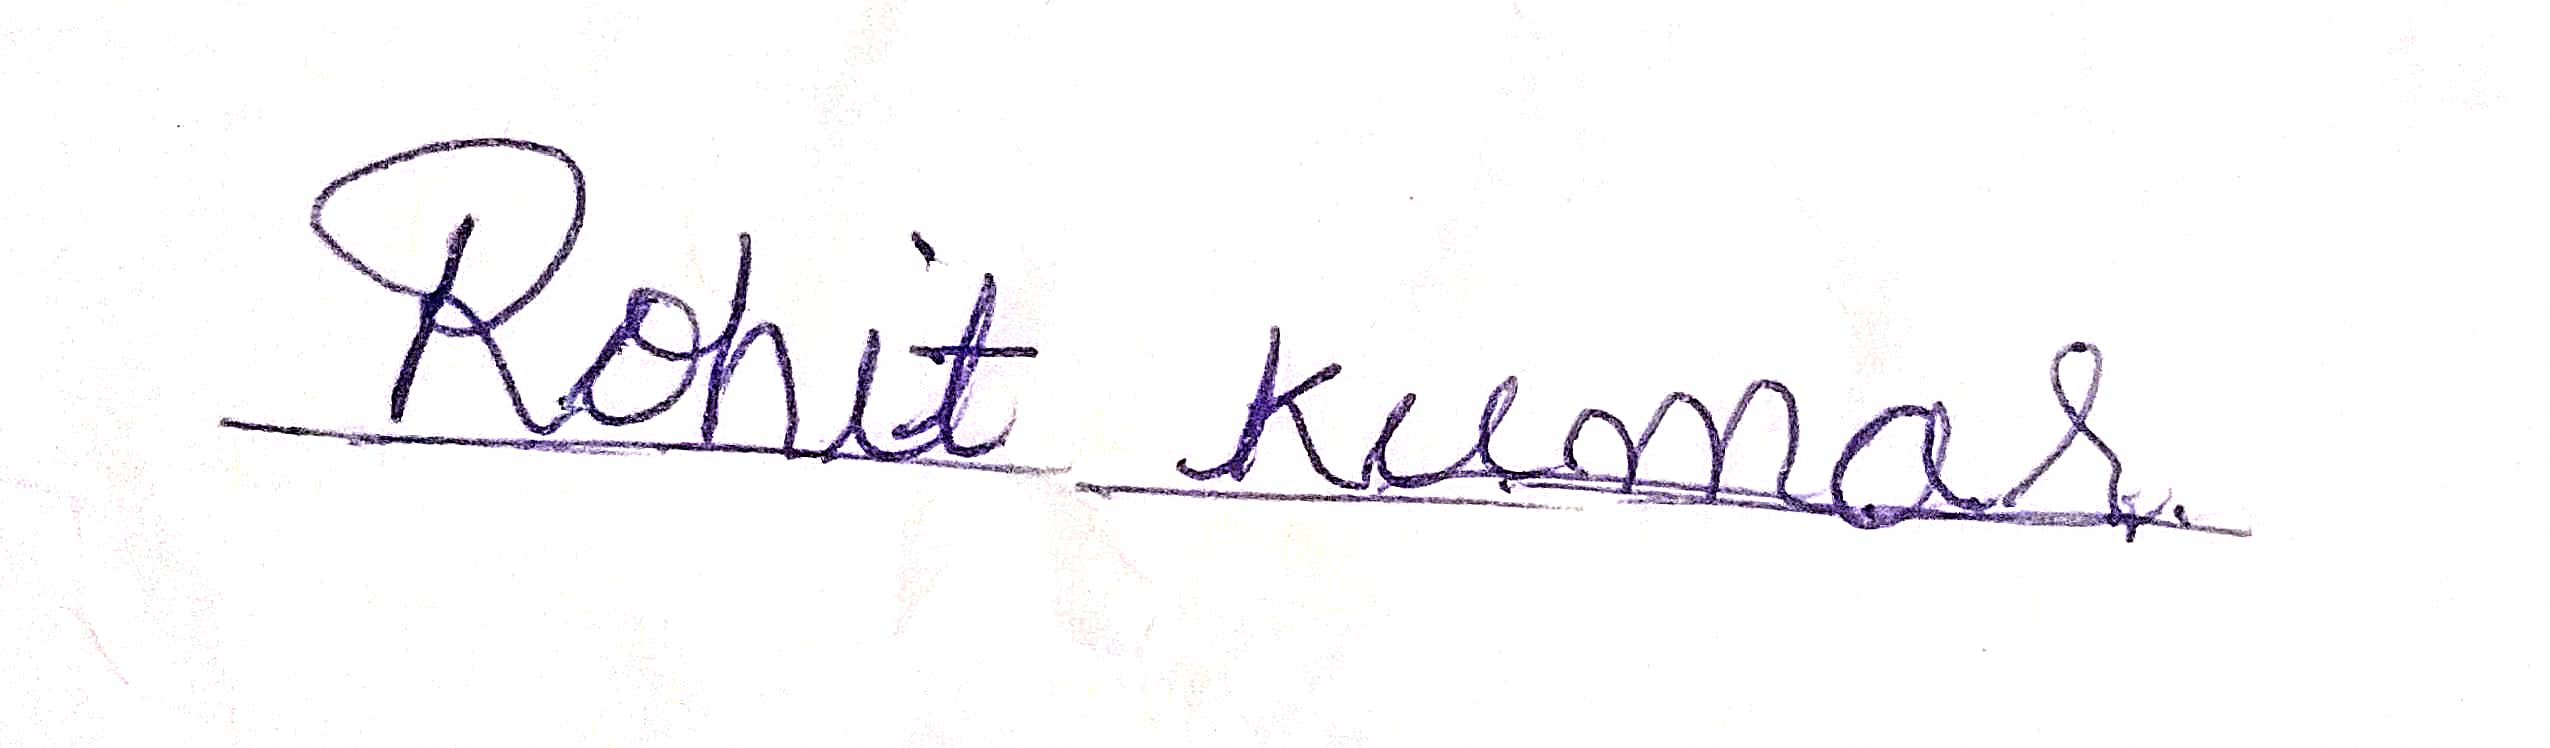 Rohit Kumar.